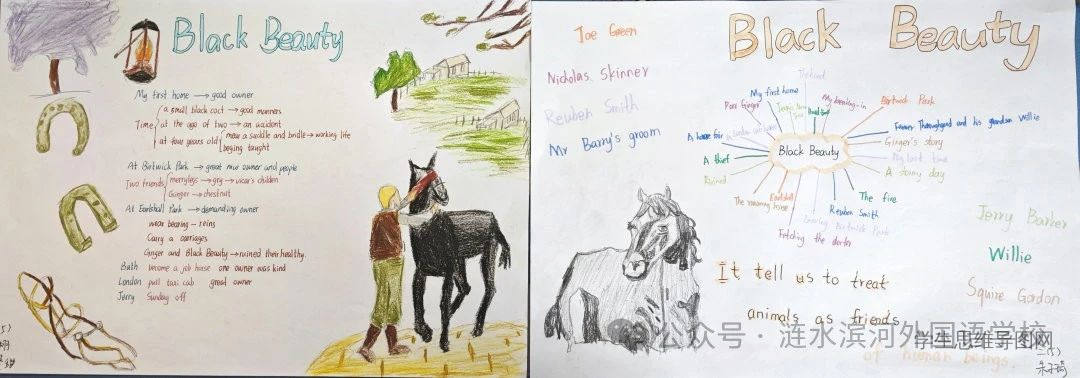 Black Beauty
My first home → good owner
Time
a small black coct → good manners
at the age of two → an accident
at four years old
wear a saddle and bridle → working life
beging taught
At Birtwick Park → great nice owner and people
Two friends
merrylegs → gry → vicar's children
Ginger → chestnut
At Earlshall Park → demanding owner
wear bearing - reins
Carry a carriages
Ginger and Black Beauty → ruined their healthy.
Bath become a job house one owner was kind
London pull taxi cab great owner
Jerry Sunday off
Black Beauty
Joe Green
Nicholas Skinner
Reuben Smith
Mr Barry's groom
The hunt
My first home
My breaking-in
Poor Ginger
Birtwick Park
Farmer Thoroughgood and his grandson Willie
A horse fair
Ginger's story
Black Beauty
A thief
My last time
Ruined
A stormy day
The fire
Earlshall
The runaway horse
Reuben Smith
Leaving Birtwick Park
Fetching the doctor
Jerry Barker
Willie
Squire Gordon
It tell us to treat
animals as friends
of human beings.
公众号 · 涟水滨河外国语学校
学生思维导图网